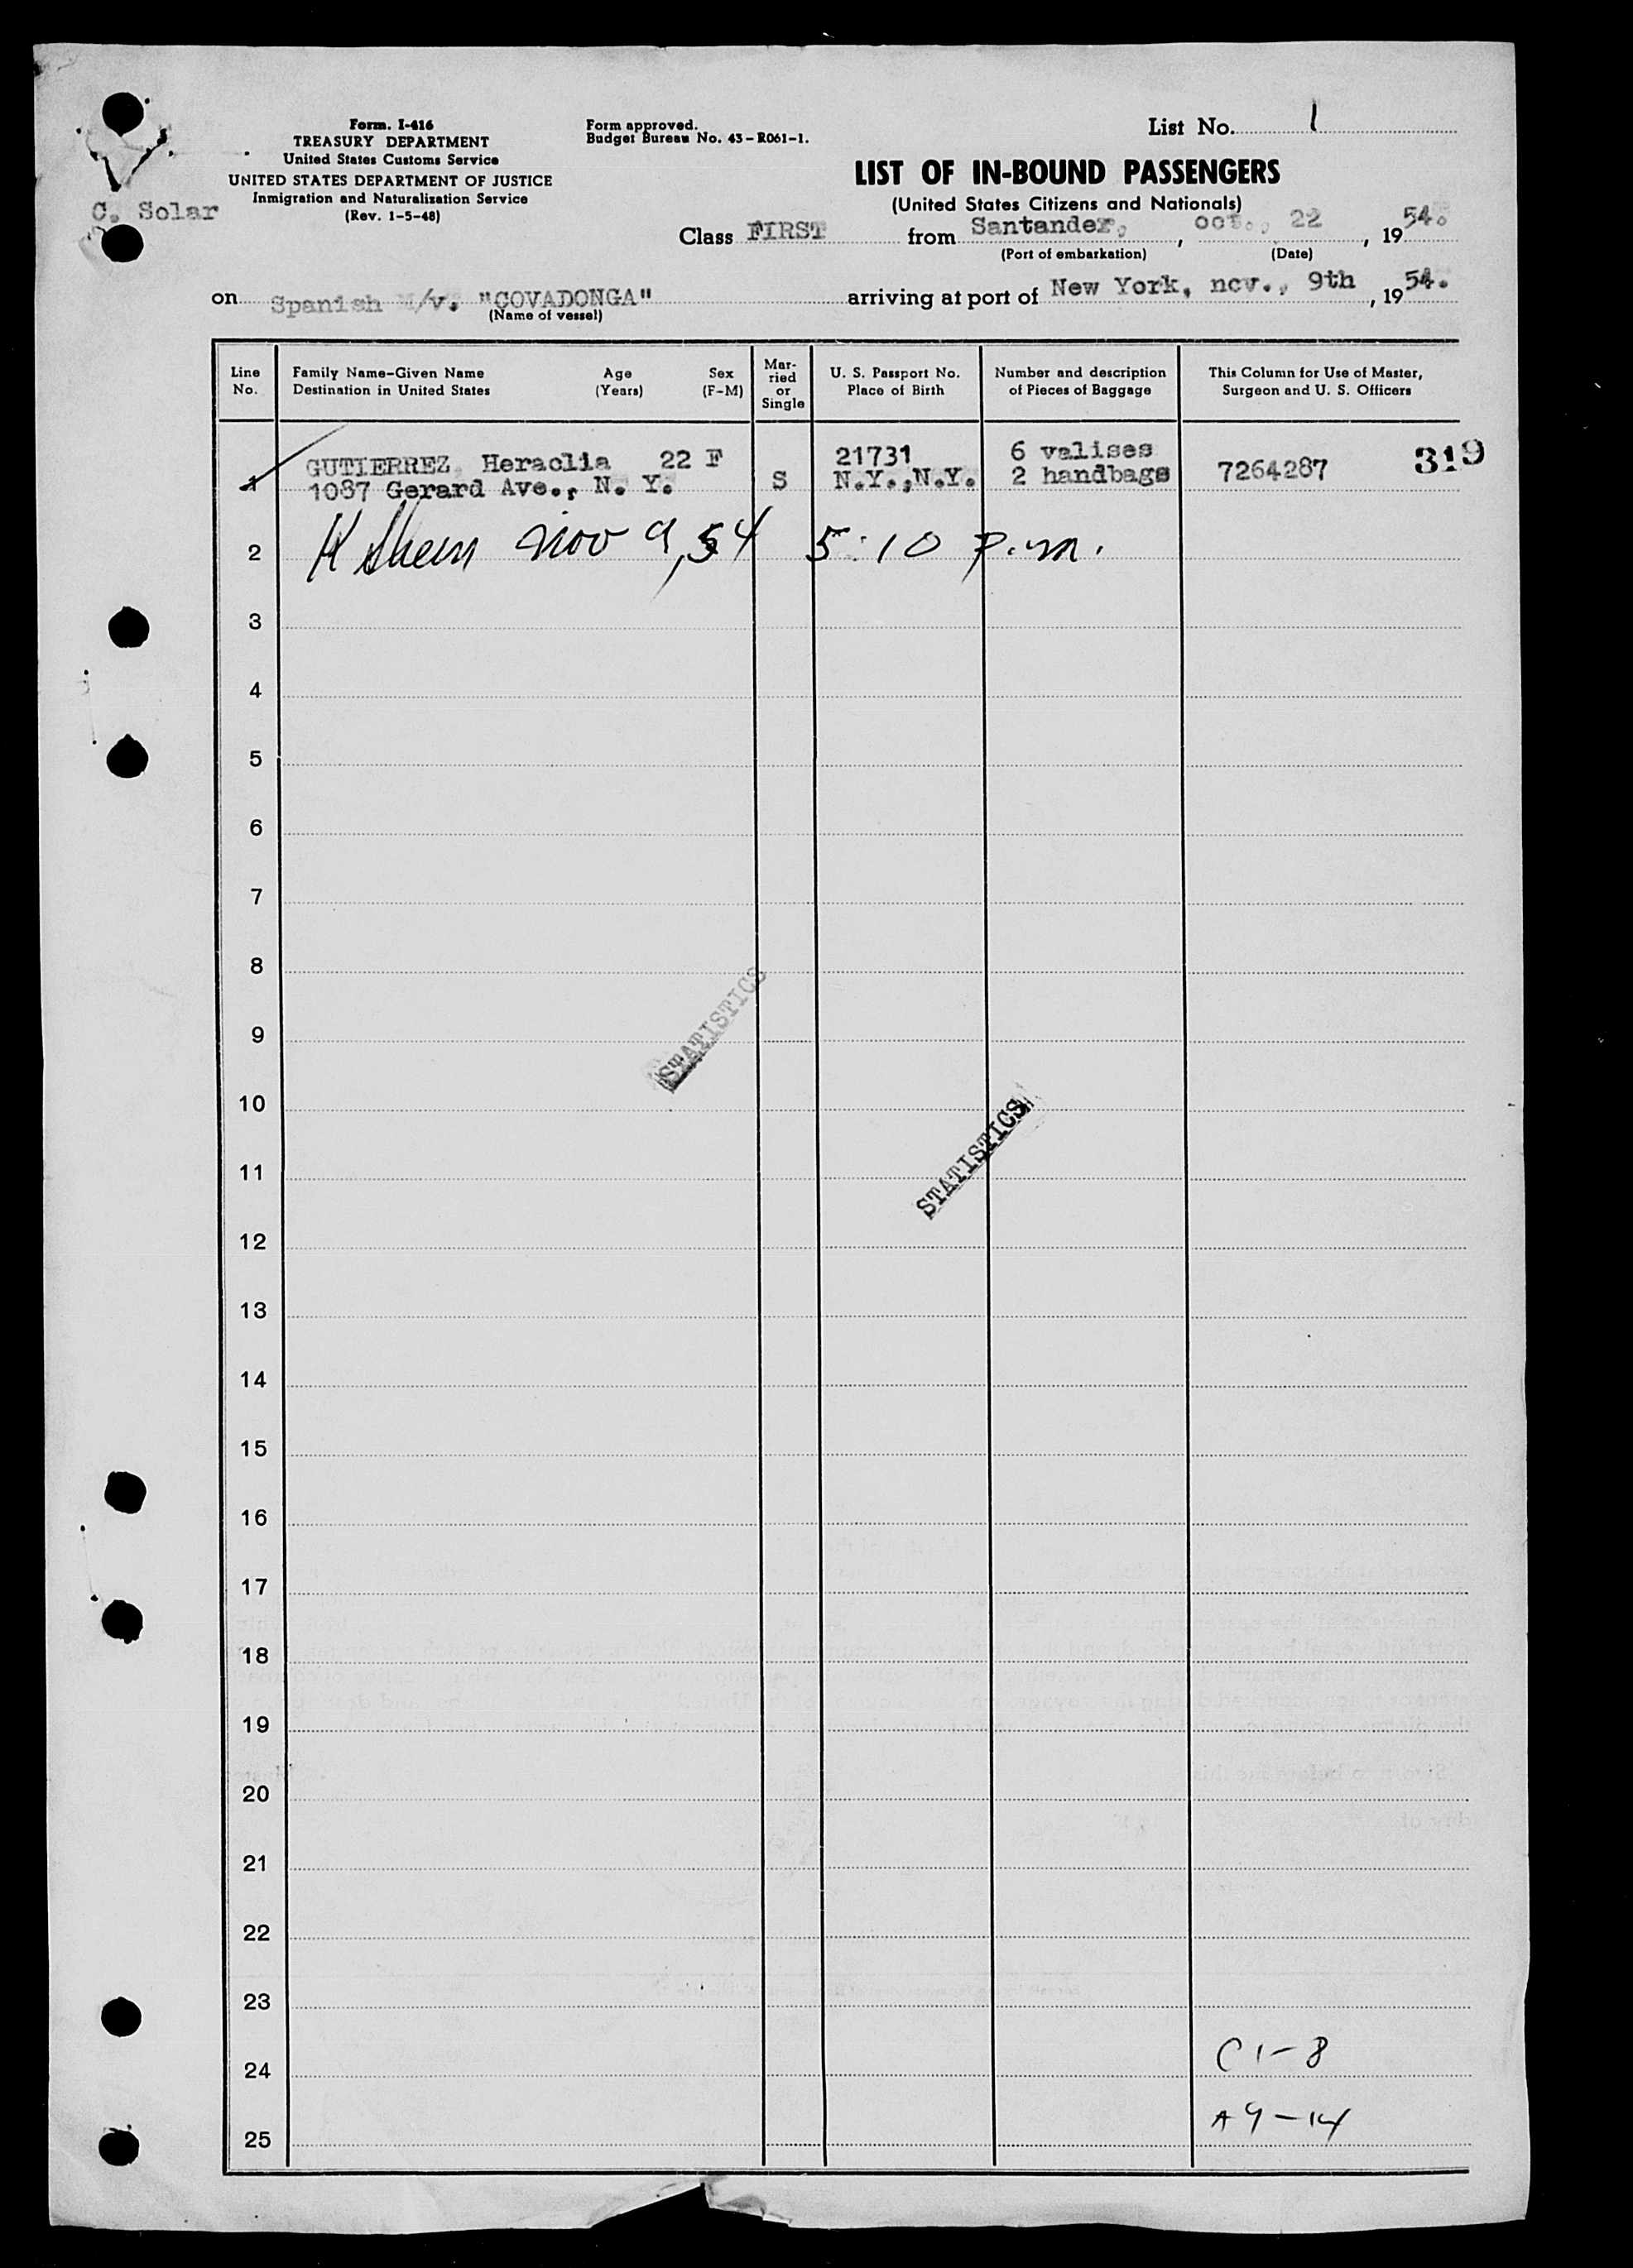 Form. I-416
TREASURY DEPARTMENT
United States Customs Service
UNITED STATES DEPARTMENT OF JUSTICE
Inmigration and Naturalisation Service
(Rev. 1-5-48)
Form approved.
Budget Bureau No. 43-R061-1.
List No. 1
LIST OF IN-BOUND PASSENGERS
(United States Citizens and Nationals)
C. Solar
Class FIRST from Santander, , oct., 22 , 19 54.
(Port of embarkation) (Date)
on Spanish M/v. "COVADONGA" arriving at port of New York, nov., 9th , 19 54.
(Name of vessel)
Line No.
Family Name-Given Name Age Sex
Destination in United States (Years) (F-M)
Mar-
ried
or
Single
U. S. Passport No.
Place of Birth
Number and description
of Pieces of Baggage
This Column for Use of Master,
Surgeon and U. S. Officers
1 GUTIERREZ Heraclia 22 F 21731 6 valises 7264287 319
1087 Gerard Ave., N. Y. S N.Y.,N.Y. 2 handbags
2 Nov 9, 54 5:10 p.m.
3
4
5
6
7
8
STATISTICS
9
10
STATISTICS
11
12
13
14
15
16
17
18
19
20
21
22
23
24 C 1-8
25 A 9-14